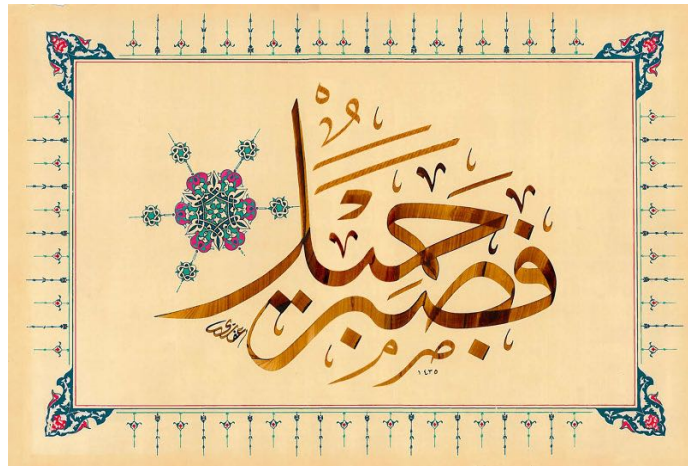 فَصَبْرٌ جَمِيلٌ
١٤٣٥